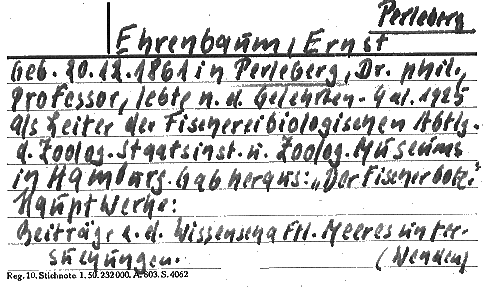 Perleberg
Ehrenbaum, Ernst
Geb. 20.12.1861 in Perleberg, Dr. phil.,
Professor, lebte n. d. Gelehrten-Kal. 1925
als Leiter der Fischereibiologischen Abtlg.
d. Zoolog. Staatsinst. u. Zoolog. Museums
in Hamburg. Gab heraus: „Der Fischerbote."
Hauptwerke:
Beiträge z. d. Wissenschaftl. Meeresunter-
suchungen. (Wenden)
Reg. 10. Stichnote 1. 50. 232000. A. 803. S. 4062